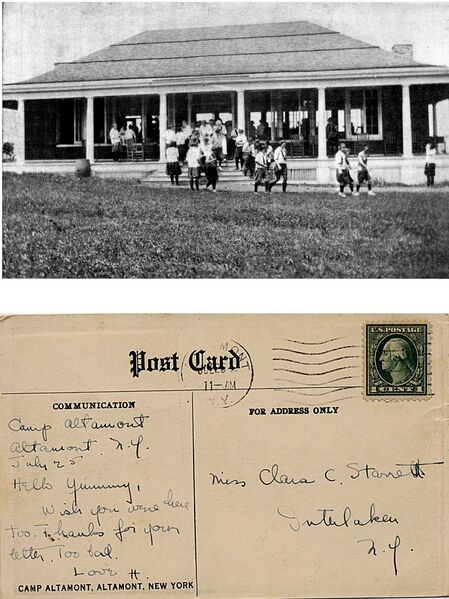 Post Card
MONT
11-AM
N.Y.
U.S. POSTAGE
CENT
COMMUNICATION
FOR ADDRESS ONLY
Camp Altamont
Altamont, N.Y.
July 25
Hello Yummy,
Wish you were here
too. Thanks for your
letter. Too bad.
Love H.
Miss Clara C. Starrett
Interlaken
N.Y.
CAMP ALTAMONT, ALTAMONT, NEW YORK